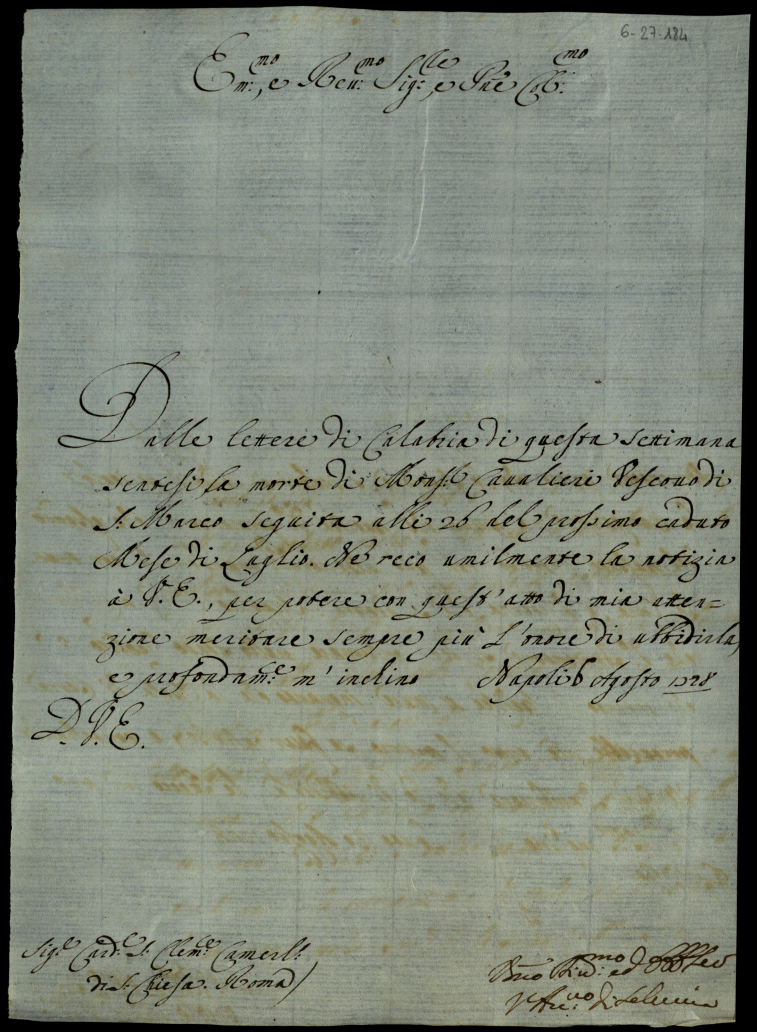 6-27-184
Em:mo, e Reu:mo Sig:re, e Pne Col:mo
Dalle lettere di Calabria di questa settimana
sentesi la morte di Mons:r Caualieri Vescouo di
S. Marco seguita alli 26 del prossimo caduto
Mese di Luglio. Ne reco umilmente la notizia
à V. E., per potere con quest' atto di mia atten=
zione meritare sempre più l'onore di ubbidirla,
e profondam:te m' inchino Napoli 6 Agosto 1728
D. V. E.
Sig:r Card:e S. Clem:te Camerl:
di S. Chiesa. Roma
ed
di